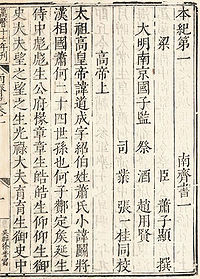 本紀第一　南齊書一
梁　臣蕭子顯撰
大明南京國子監祭酒趙用賢
司業張一桂同校
高帝上
太祖高皇帝諱道成字紹伯姓蕭氏小諱鬬將
漢相國蕭何二十四世孫也何子酇定侯延生
侍中彪彪生公府掾章章生皓皓生仰仰生御
史大夫望之望之生光祿大夫育育生御史中